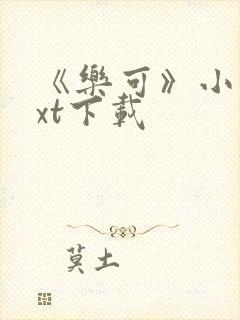 《樂可》小
xt下載
莫土